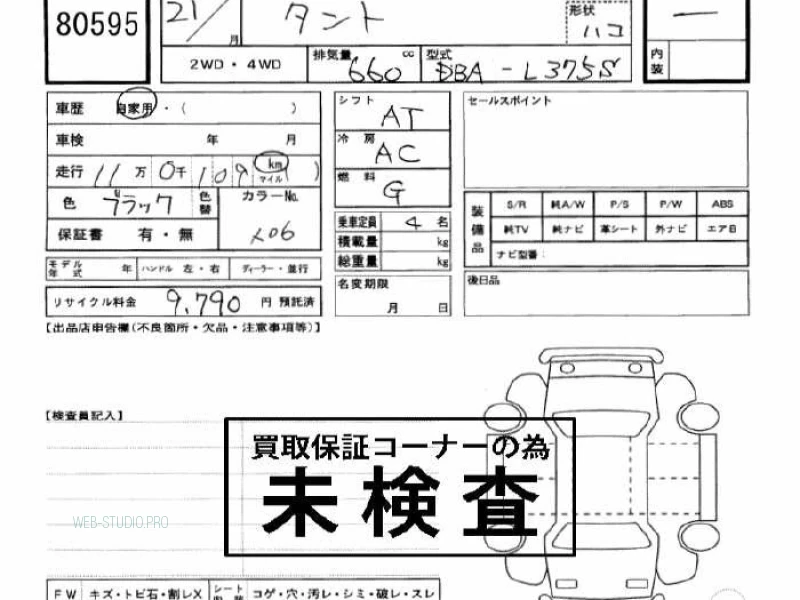 80595 21/ 月 タント 形状 ハコ 一
2WD・4WD 排気量 660 cc 型式 DBA-L375S 内装
車歴 自家用・( ) シフト AT セールスポイント
車検 年 月 冷房 AC
走行 11万0千109 km マイル ) 燃料 G
色 ブラック 色替 カラーNo. X06
装備品 S/R 純A/W P/S P/W ABS
保証書 有・無 乗車定員 4名 純TV 純ナビ 革シート 外ナビ エアB
積載量 kg ナビ型番:
モデル年式 年 ハンドル 左・右 ディーラー・並行 総重量 kg
リサイクル料金 9,790 円 預託済 名変期限 月 日 後日品
【出品店申告欄(不良箇所・欠品・注意事項等)】
【検査員記入】
買取保証コーナーの為
未検査
WEB-STUDIO.PRO
FW キズ・トビ石・割レX シート コゲ・穴・汚レ・シミ・破レ・スレ